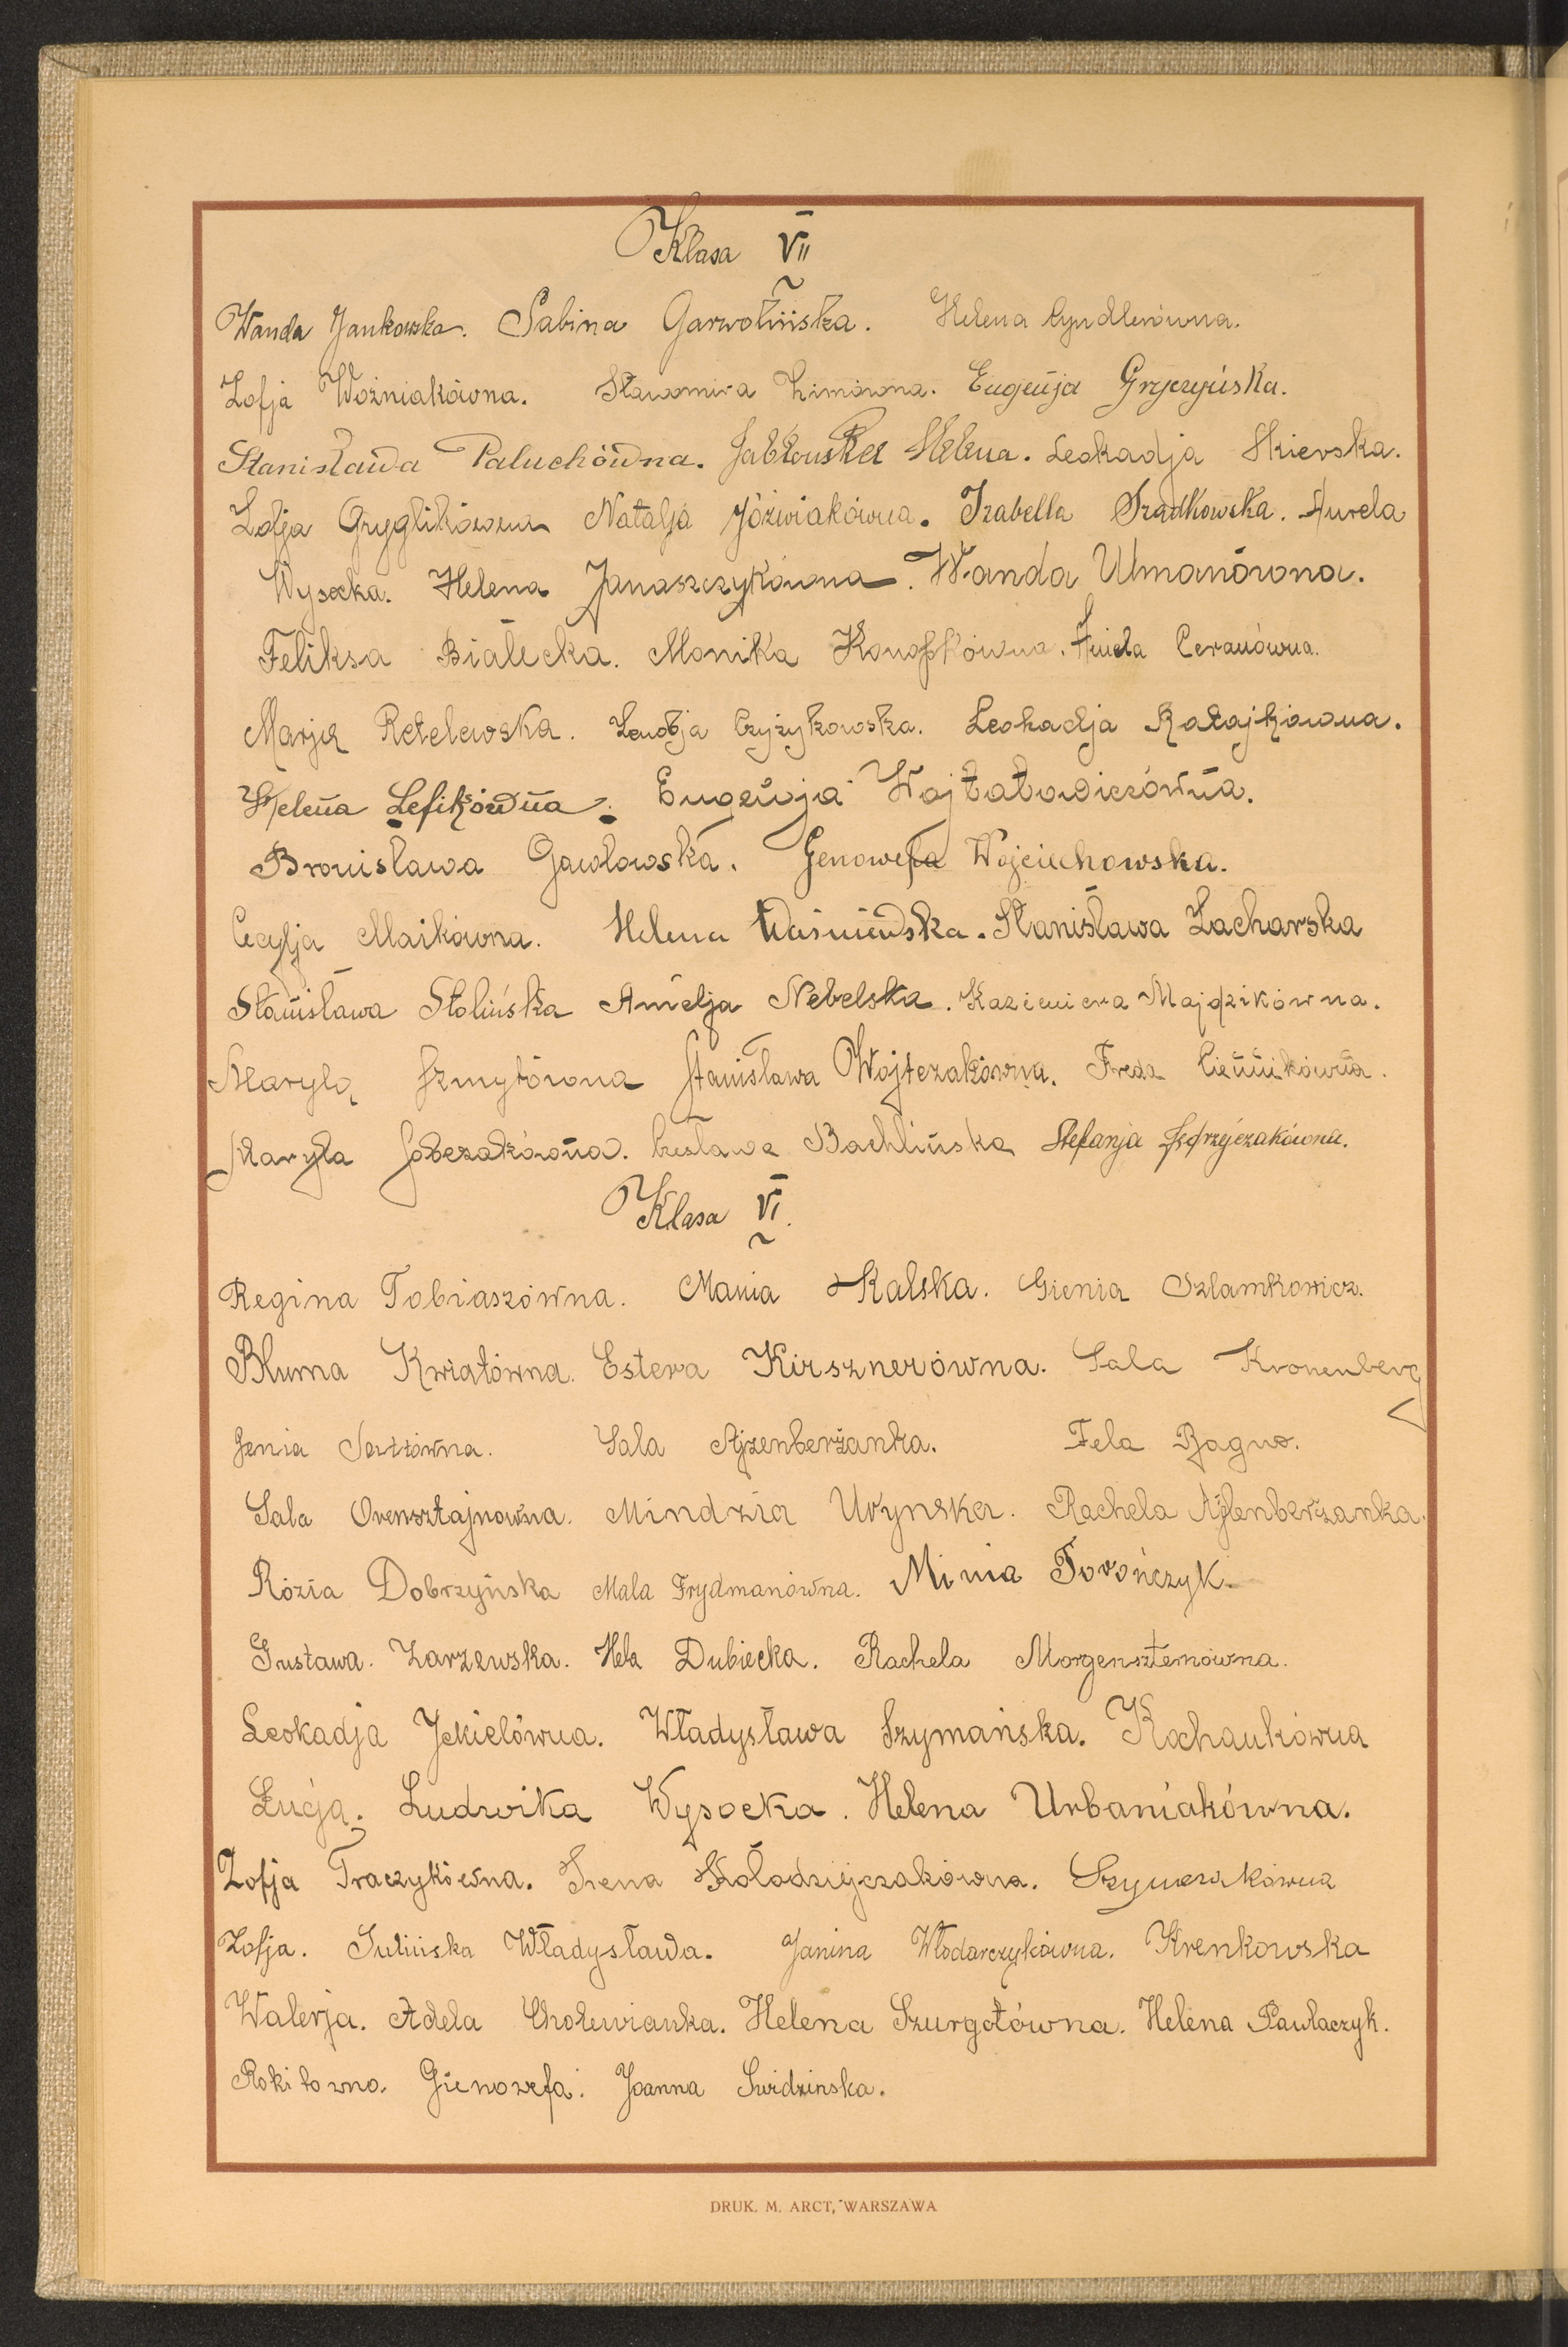 Klasa VII
Wanda Jankowska. Sabina Garwolińska. Helena Cyndlerówna.
Zofja Woźniakówna. Sławomira Zimówna. Eugenja Gryczyńska.
Stanisława Paluchówna. Jabłouska Helena. Leokadja Skierska.
Zofja Gryglikówna Natalja Jóźwiakówna. Izabella Sradkowska. Aurela
Wysocka. Helena Janaszczykówna. Wanda Ulmanówna.
Feliksa Białecka. Monika Konopkówna. Aniela Ceranówna.
Marja Retelewska. Czyżykowska. Leokadja Ratajkówna.
Helena Lefikówna. Eugenja Wojtatowiczówna.
Bronisława Gawłowska. Genowefa Wojciechowska.
Cecylja Maikówna. Helena Waśniewska. Stanisława Zacharska
Stanisława Stolińska Amelja Nebelska. Kazimiera Majdzikówna.
Maryla Szmytówna Stanisława Wojtczakówna. Freda Ciennikówna.
Maryla Sobczakówna. Czesława Bachlińska Stefanja Jędrzejczakówna.
Klasa VI.
Regina Tobiaszówna. Mania Skalska. Gienia Szlamkowicz.
Bluma Kwiatówna. Estera Kirsznerówna. Sala Kronenberg
Jenia Sala Ajzenberżanka. Fela Bagno.
Sala Orensztajnowna. Mindzia Urynska. Rachela Ajlenberżanka.
Rózia Dobrzyńska Mala Frydmanówna. Minia Torończyk
Gustawa. Zarzewska. Hela Dubiecka. Rachela Morgenszternówna.
Leokadja Jekielówna. Władysława Szymańska. Kochankówna
Łucja. Ludwika Wysocka. Helena Urbaniakówna.
Zofja Traczykówna. Irena Kołodziejczakówna. Szymczakówna
Zofja. Sulińska Władysława. Janina Włodarczykówna. Krenkowska
Walerja. Adela Cholewianka. Helena Szurgotówna. Helena Pawlaczyk.
Rokitowna. Gienowefa. Joanna Swidzinska.